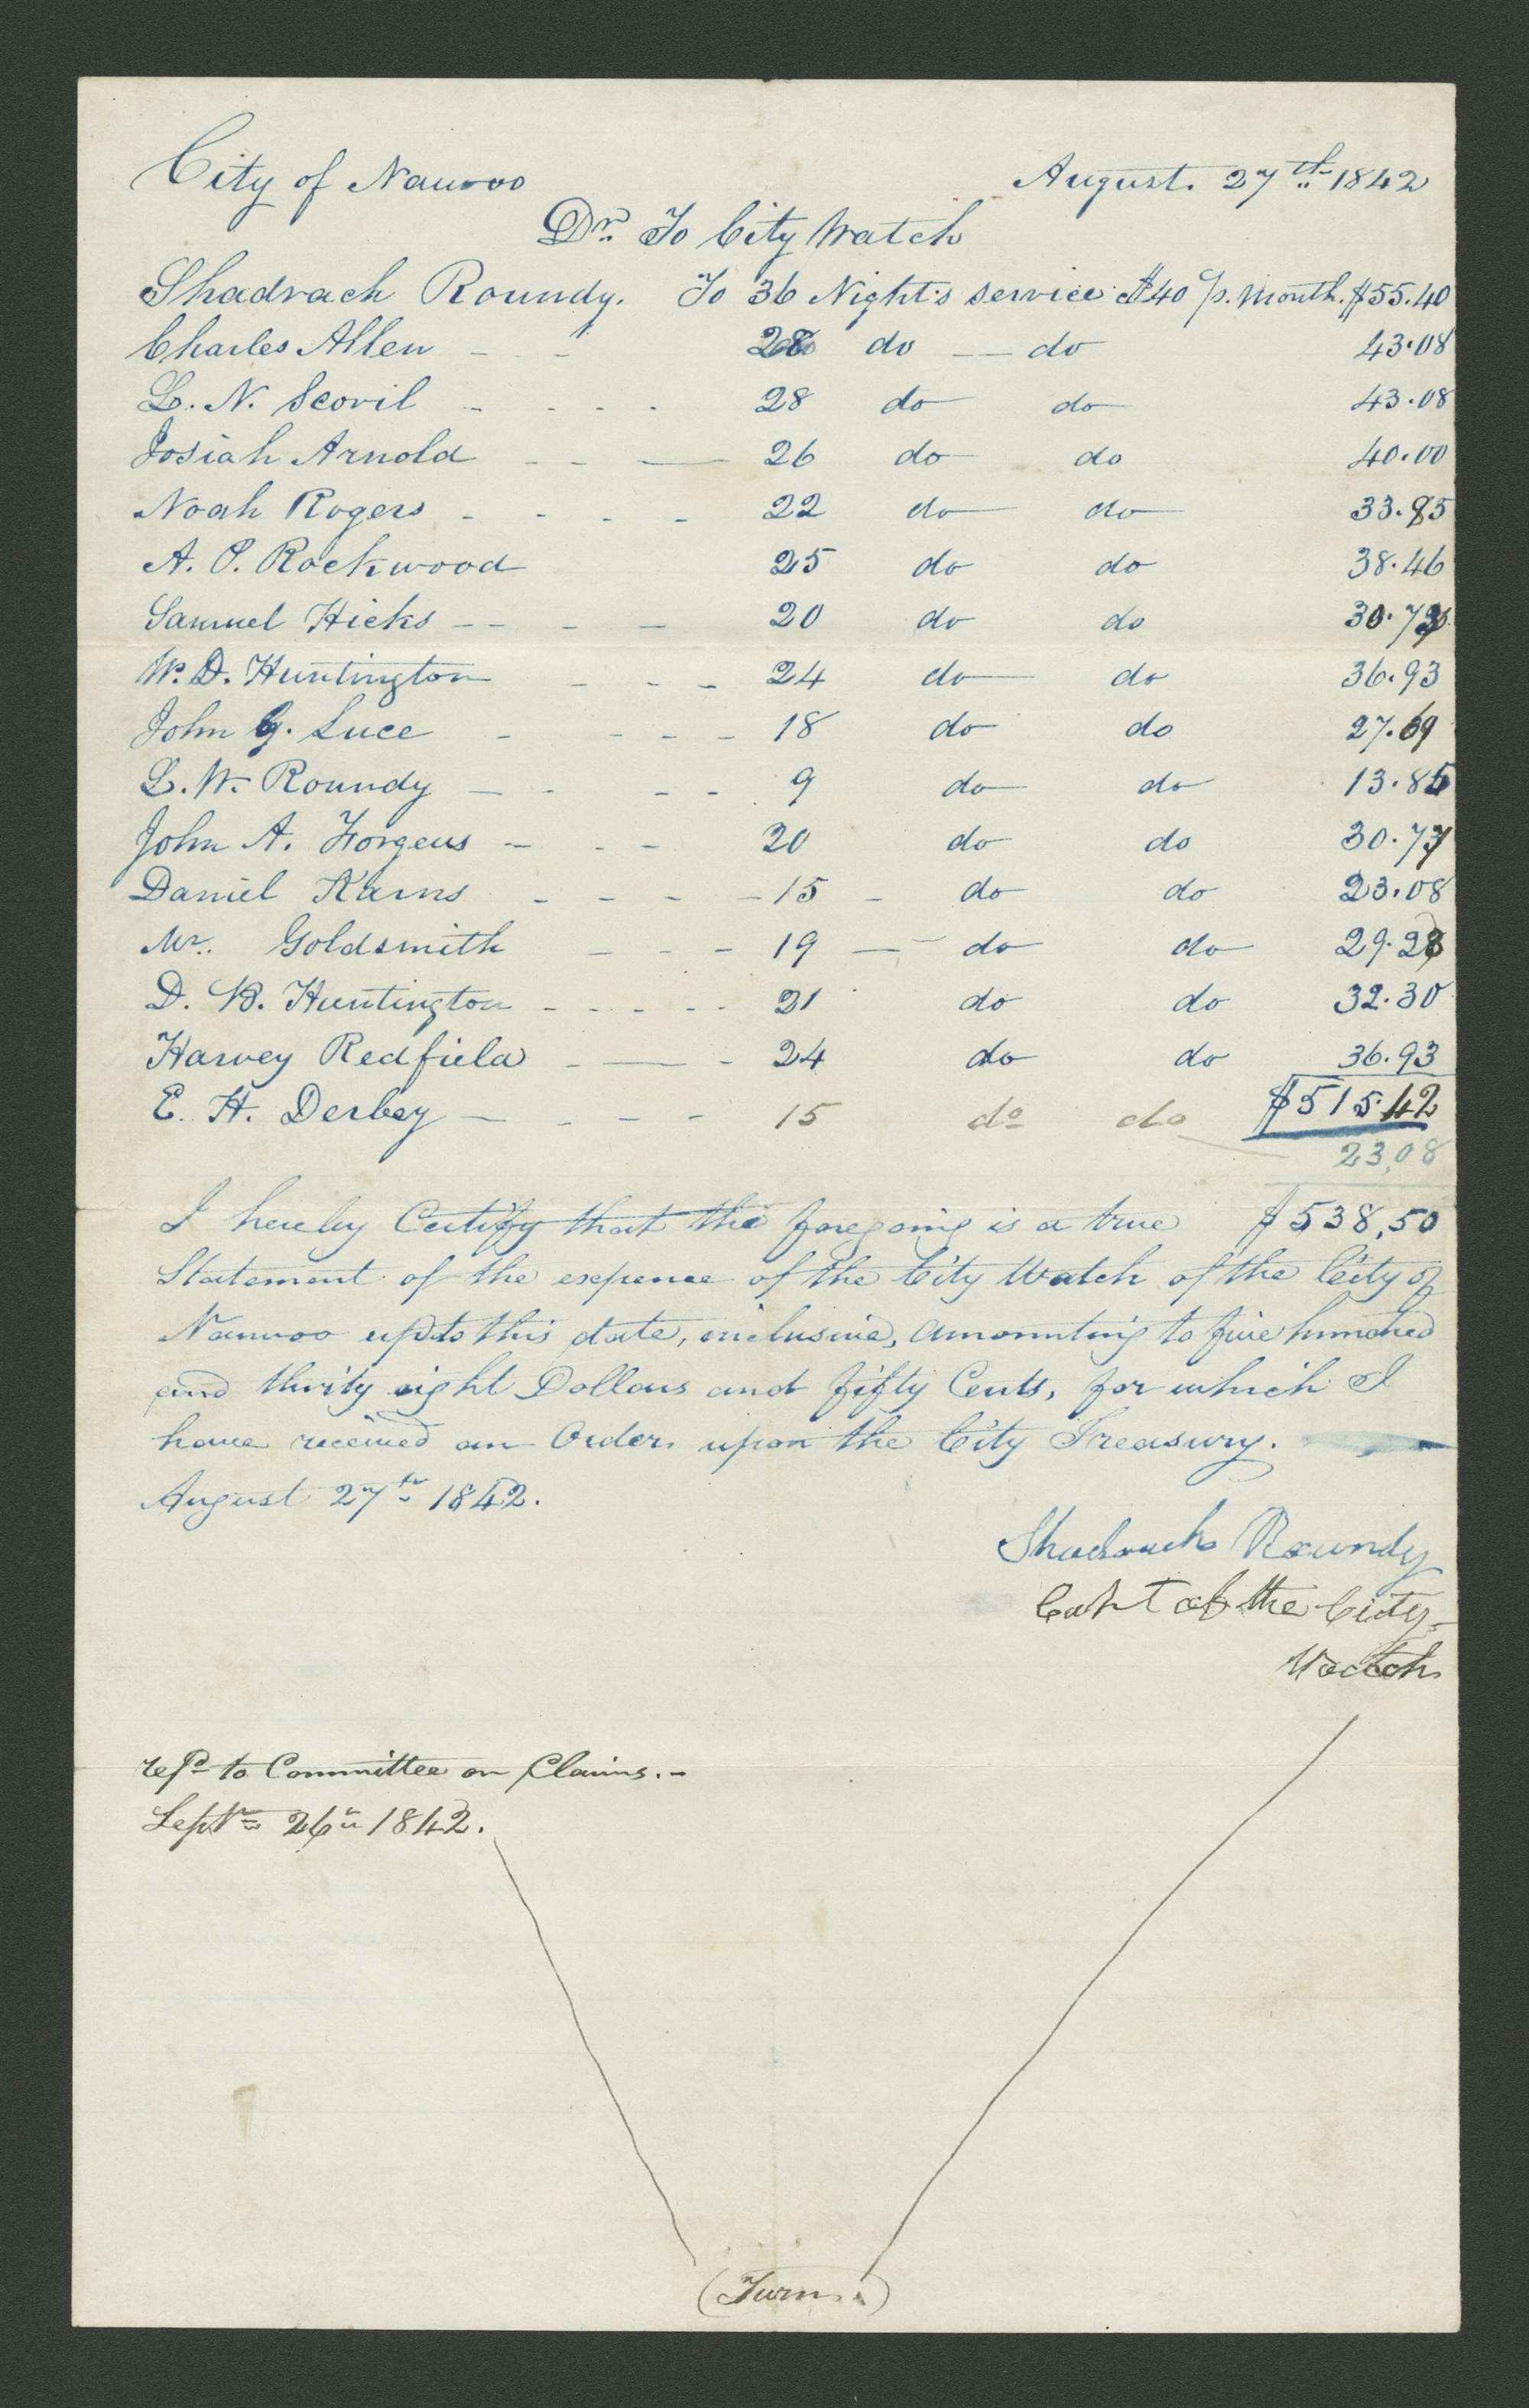 City of Nauvoo August. 27th 1842
Dr. To City Watch
Shadrach Roundy. To 36 Night's service $40 p. Month. $55.40
Charles Allen - - 28 do - do 43.08
L. N. Scovil - - - - 28 do do 43.08
Josiah Arnold - - - 26 do do 40.00
Noah Rogers - - - - 22 do do 33.85
A. P. Rockwood 25 do do 38.46
Samuel Hicks - - - - 20 do do 30.73
W. D. Huntington - - - 24 do do 36.93
John G. Luce - - - - 18 do do 27.69
L. W. Roundy - - - - 9 do do 13.85
John A. Forgeus - - - 20 do do 30.77
Daniel Karns - - - - 15 - do do 23.08
Mr. Goldsmith - - - 19 - do do 29.23
D. B. Huntington - - - - - 21 do do 32.30
Harvey Redfield - - - 24 do do 36.93
E. H. Derbey - - - - 15 do do $515.42
23,08
I hereby Certify that the foregoing is a true $538,50
Statement of the expence of the City Watch of the City of
Nauvoo up to this date, inclusive, amounting to five hundred
and thirty eight Dollars and fifty Cents, for which I
have received an Order upon the City Treasury.
August 27th 1842.
Shadrach Roundy
Capt of the City
Watch
refd to Committee on Claims.-
Septr 26" 1842.
(Turn.)